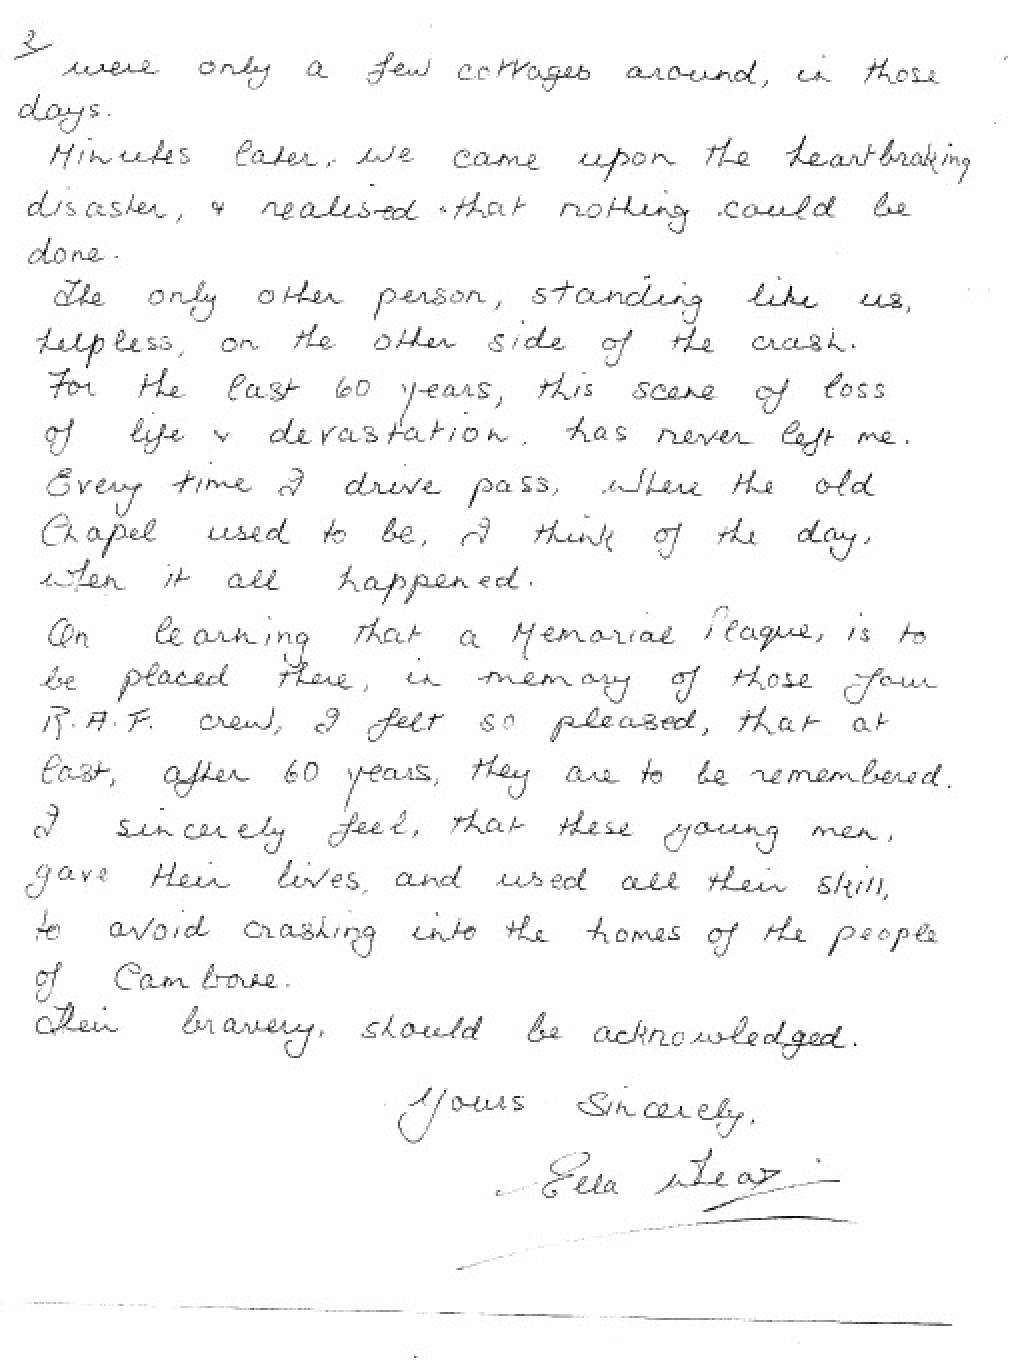 2/
were only a few cottages around, in those
days.
Minutes later, we came upon the heartbraking
disaster, & realised that nothing could be
done.
The only other person, standing like us,
helpless, on the other side of the crash.
For the last 60 years, this scene of loss
of life & devastation. has never left me.
Every time I drive pass, where the old
Chapel used to be, I think of the day,
when it all happened.
On learning that a Memorial Plaque, is to
be placed there, in memory of those four
R.A.F. crew, I felt so pleased, that at
last, after 60 years, they are to be remembered.
I sincerely feel, that these young men,
gave their lives, and used all their skill,
to avoid crashing into the homes of the people
of Camborne.
Their bravery, should be acknowledged.
Yours Sincerely,
Ella